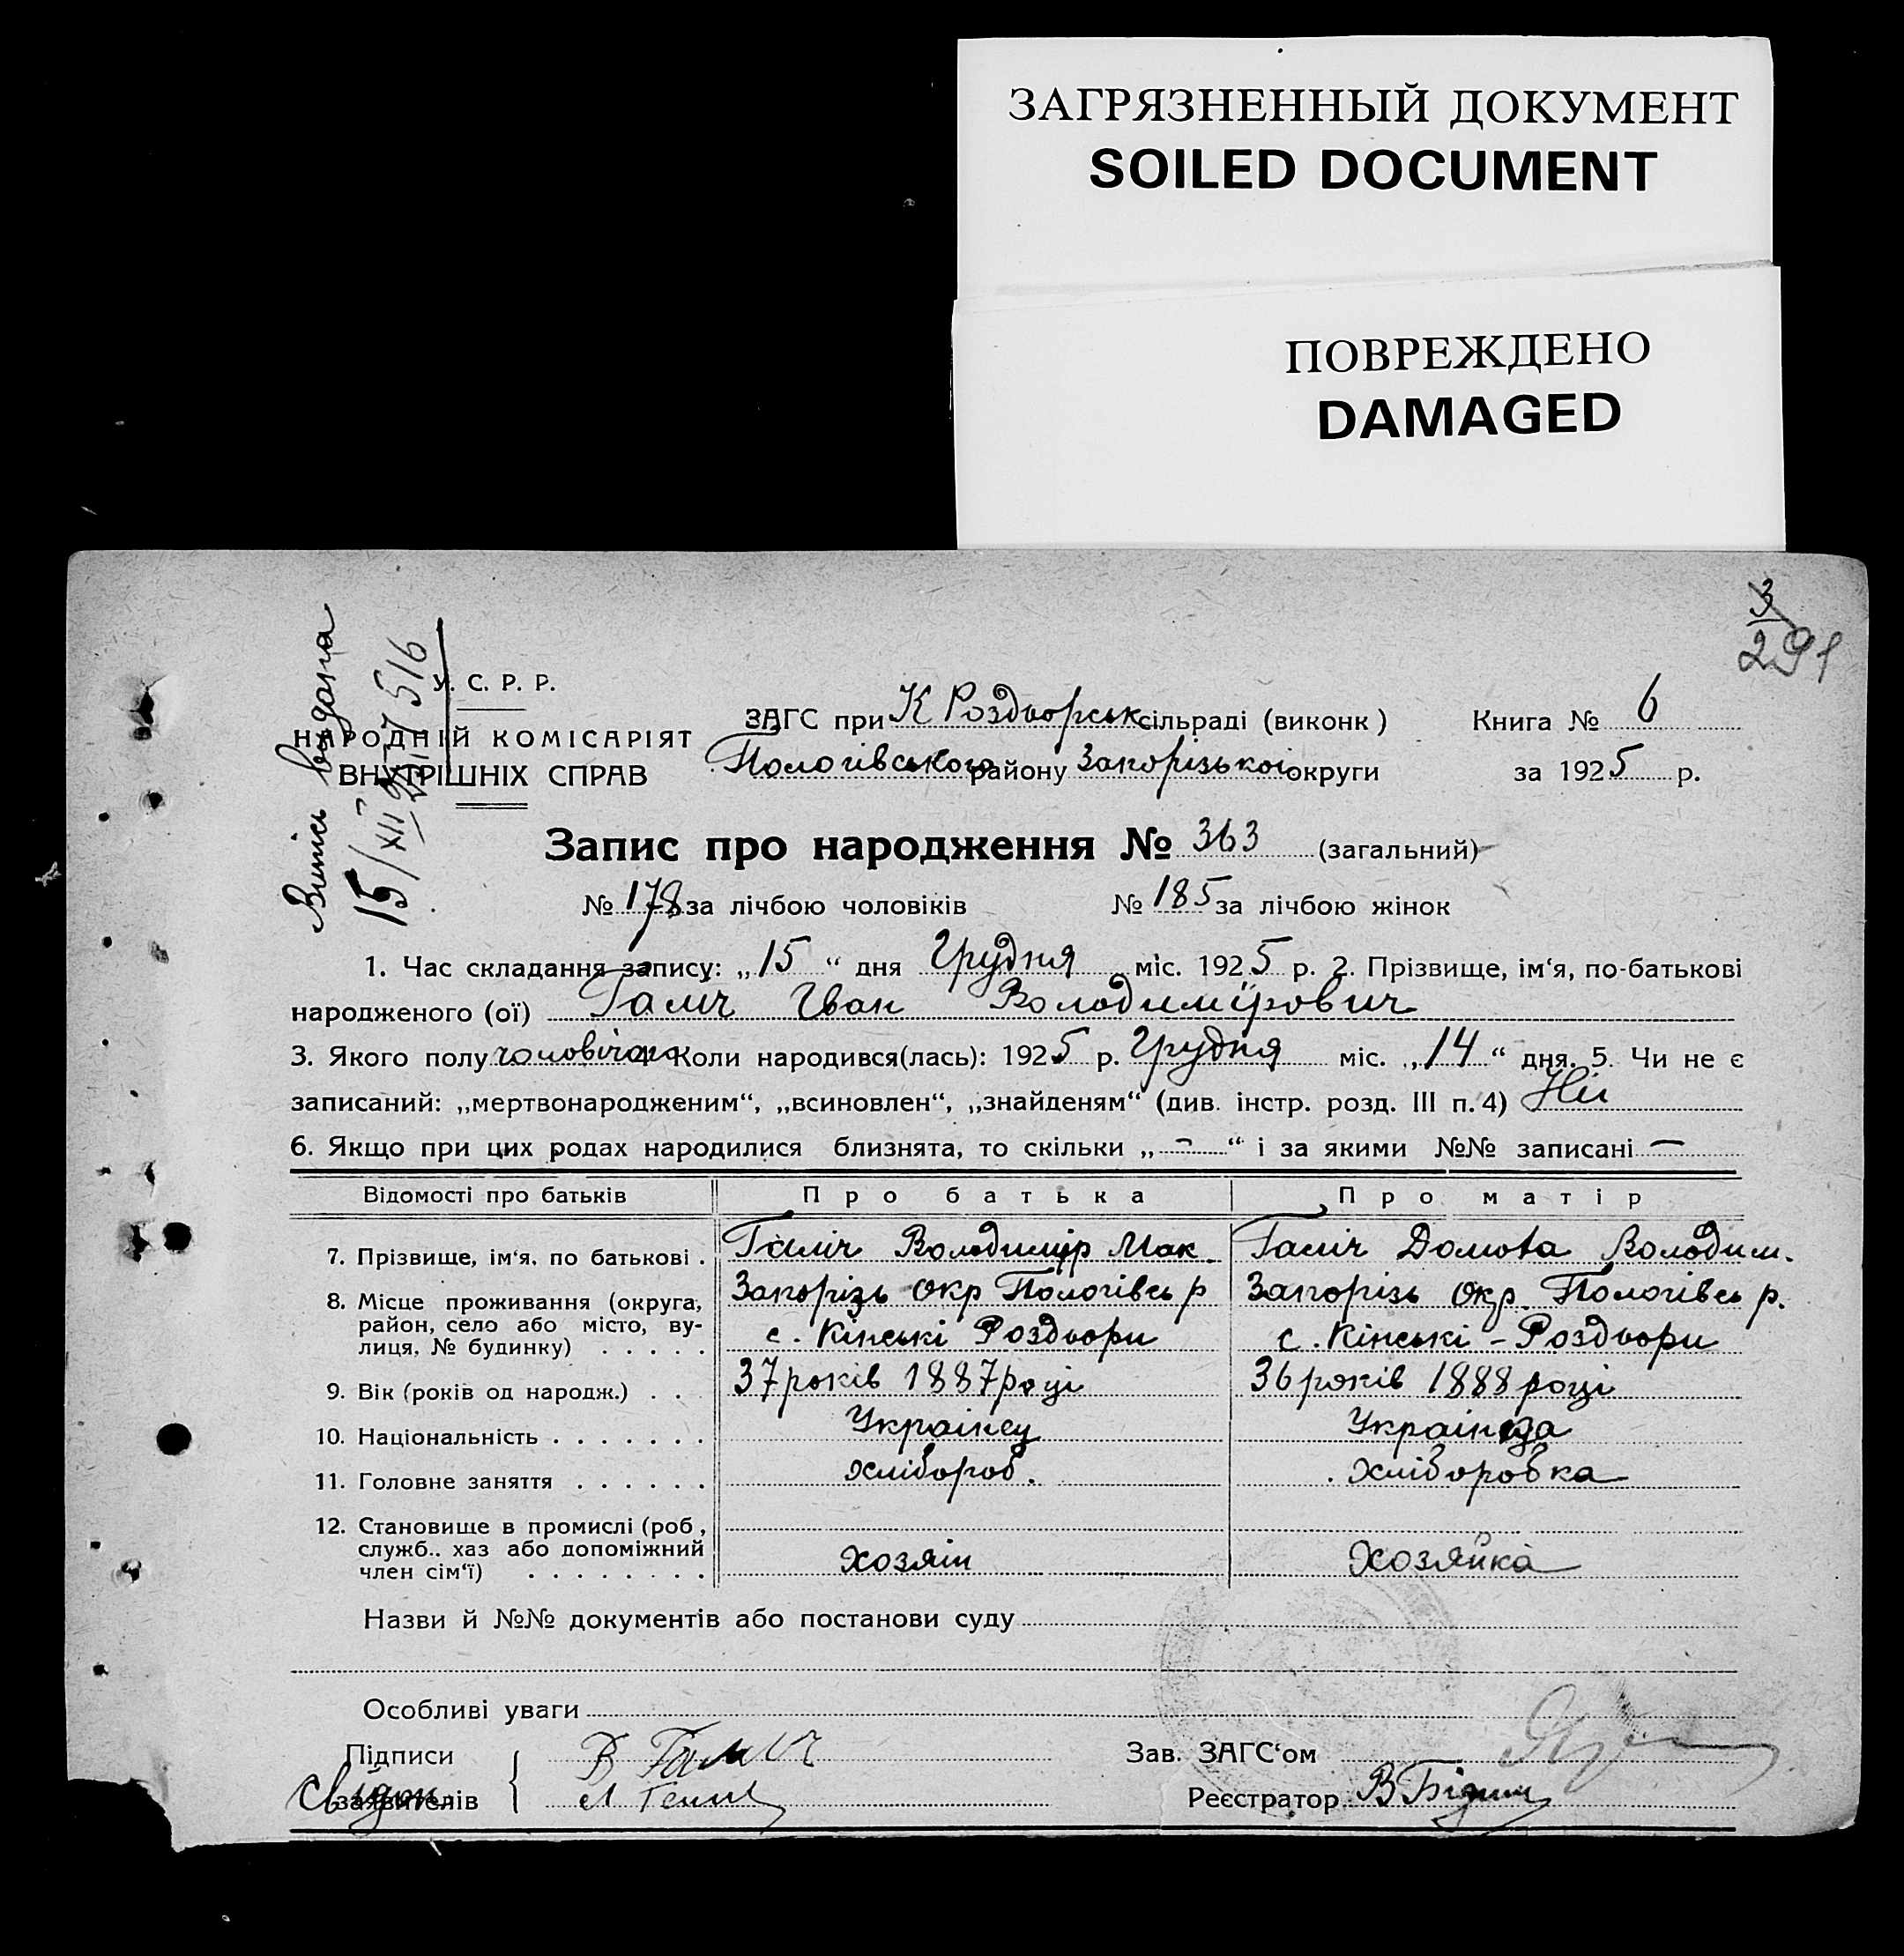 ЗАГРЯЗНЕННЫЙ ДОКУМЕНТ
SOILED DOCUMENT
ПОВРЕЖДЕНО
DAMAGED
3
291
Випись видана
15/XII 27 516
У. С. Р. Р.
НАРОДНІЙ КОМІСАРІЯТ
ВНУТРІШНІХ СПРАВ
ЗАГС при К Роздворськ сільраді (виконк ) Книга № 6
Пологівського району Запорізької округи за 1925 р.
Запис про народження № 363 (загальний)
№ 178 за лічбою чоловіків № 185 за лічбою жінок
1. Час складання запису: „15“ дня Грудня міс. 1925 р. 2. Прізвище, ім‘я, по-батькові
народженого (ої) Галіч Іван Володимірович
3. Якого полу чоловічого 4 Коли народився(лась): 1925 р. Грудня міс. „14“ дня. 5. Чи не є
записаний: „мертвонародженим“, „всиновлен“, „знайденям“ (див. інстр. розд. III п. 4) Ні
6. Якщо при цих родах народилися близнята, то скільки „—“ і за якими №№ записані —
Відомості про батьків Про батька Про матір
7. Прізвище, ім‘я, по батькові . Галіч Володимір Мак. Галіч Володим.
8. Місце проживання (округа, район, село або місто, вулиця, № будинку) . . . . . Запорізь окр Пологівсь р Запорізь окр. Пологівсь р.
с. Кінські Роздори с. Кінські - Роздори
9. Вік (років од народж.) . . . 37 років 1887 році 36 років 1888 році
10. Національність . . . . . . . Українец Українца
11. Головне заняття . . . . . . хлібороб. хлібороbка
12. Становище в промислі (роб , служб.. хаз або допоміжний член сім‘ї) . . . . . . . . хозяін хозяйка
Назви й №№ документів або постанови суду
Особливі уваги
Підписи В Галіч Зав. ЗАГС‘ом
заявителів Свідок Реєстратор В